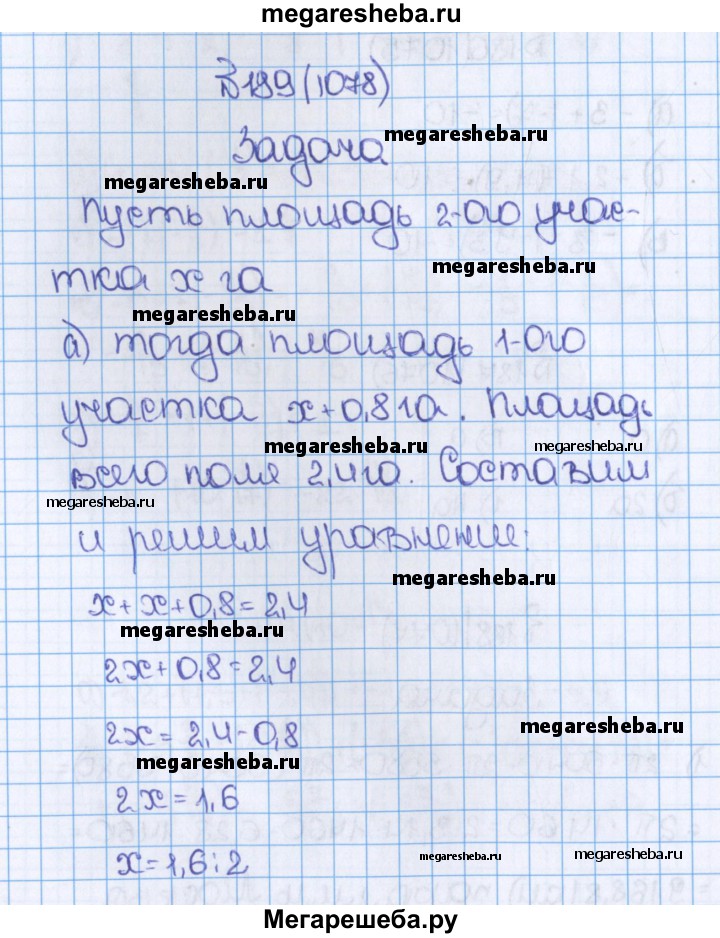 megaresheba.ru
№199(1078)
megaresheba.ru
Задача
megaresheba.ru
Пусть площадь 2-ого учас-
megaresheba.ru
тка x га
megaresheba.ru
а) тогда площадь 1-ого
участка x+0,8 га. Площадь
megaresheba.ru
megaresheba.ru
всего поля 2,4 га. Составим
megaresheba.ru
и решим уравнение:
megaresheba.ru
x+x+0,8=2,4
megaresheba.ru
2x+0,8=2,4
megaresheba.ru
2x=2,4-0,8
megaresheba.ru
2x=1,6
x=1,6:2
megaresheba.ru
megaresheba.ru
Мегарешеба.ру